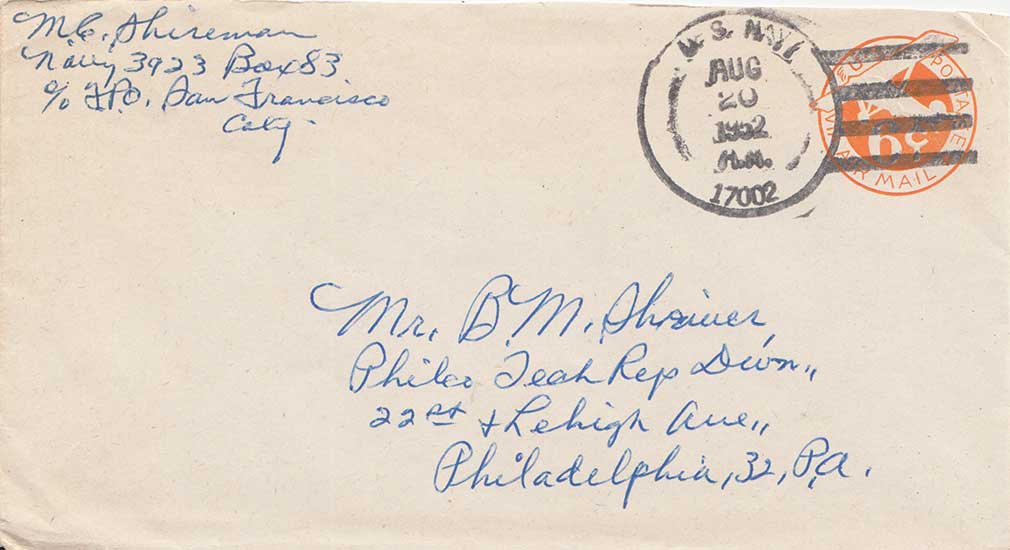 M.C. Shireman
Navy 3923 Box 83
c/o F.P.O. San Francisco
Calif.
U. S. NAVY
AUG
20
1952
A.M.
17002
POSTAGE
6¢
VIA AIR MAIL
Mr. B. M. Shriver,
Philco Tech Rep Divn.,
22nd & Lehigh Ave.,
Philadelphia, 32, P.A.